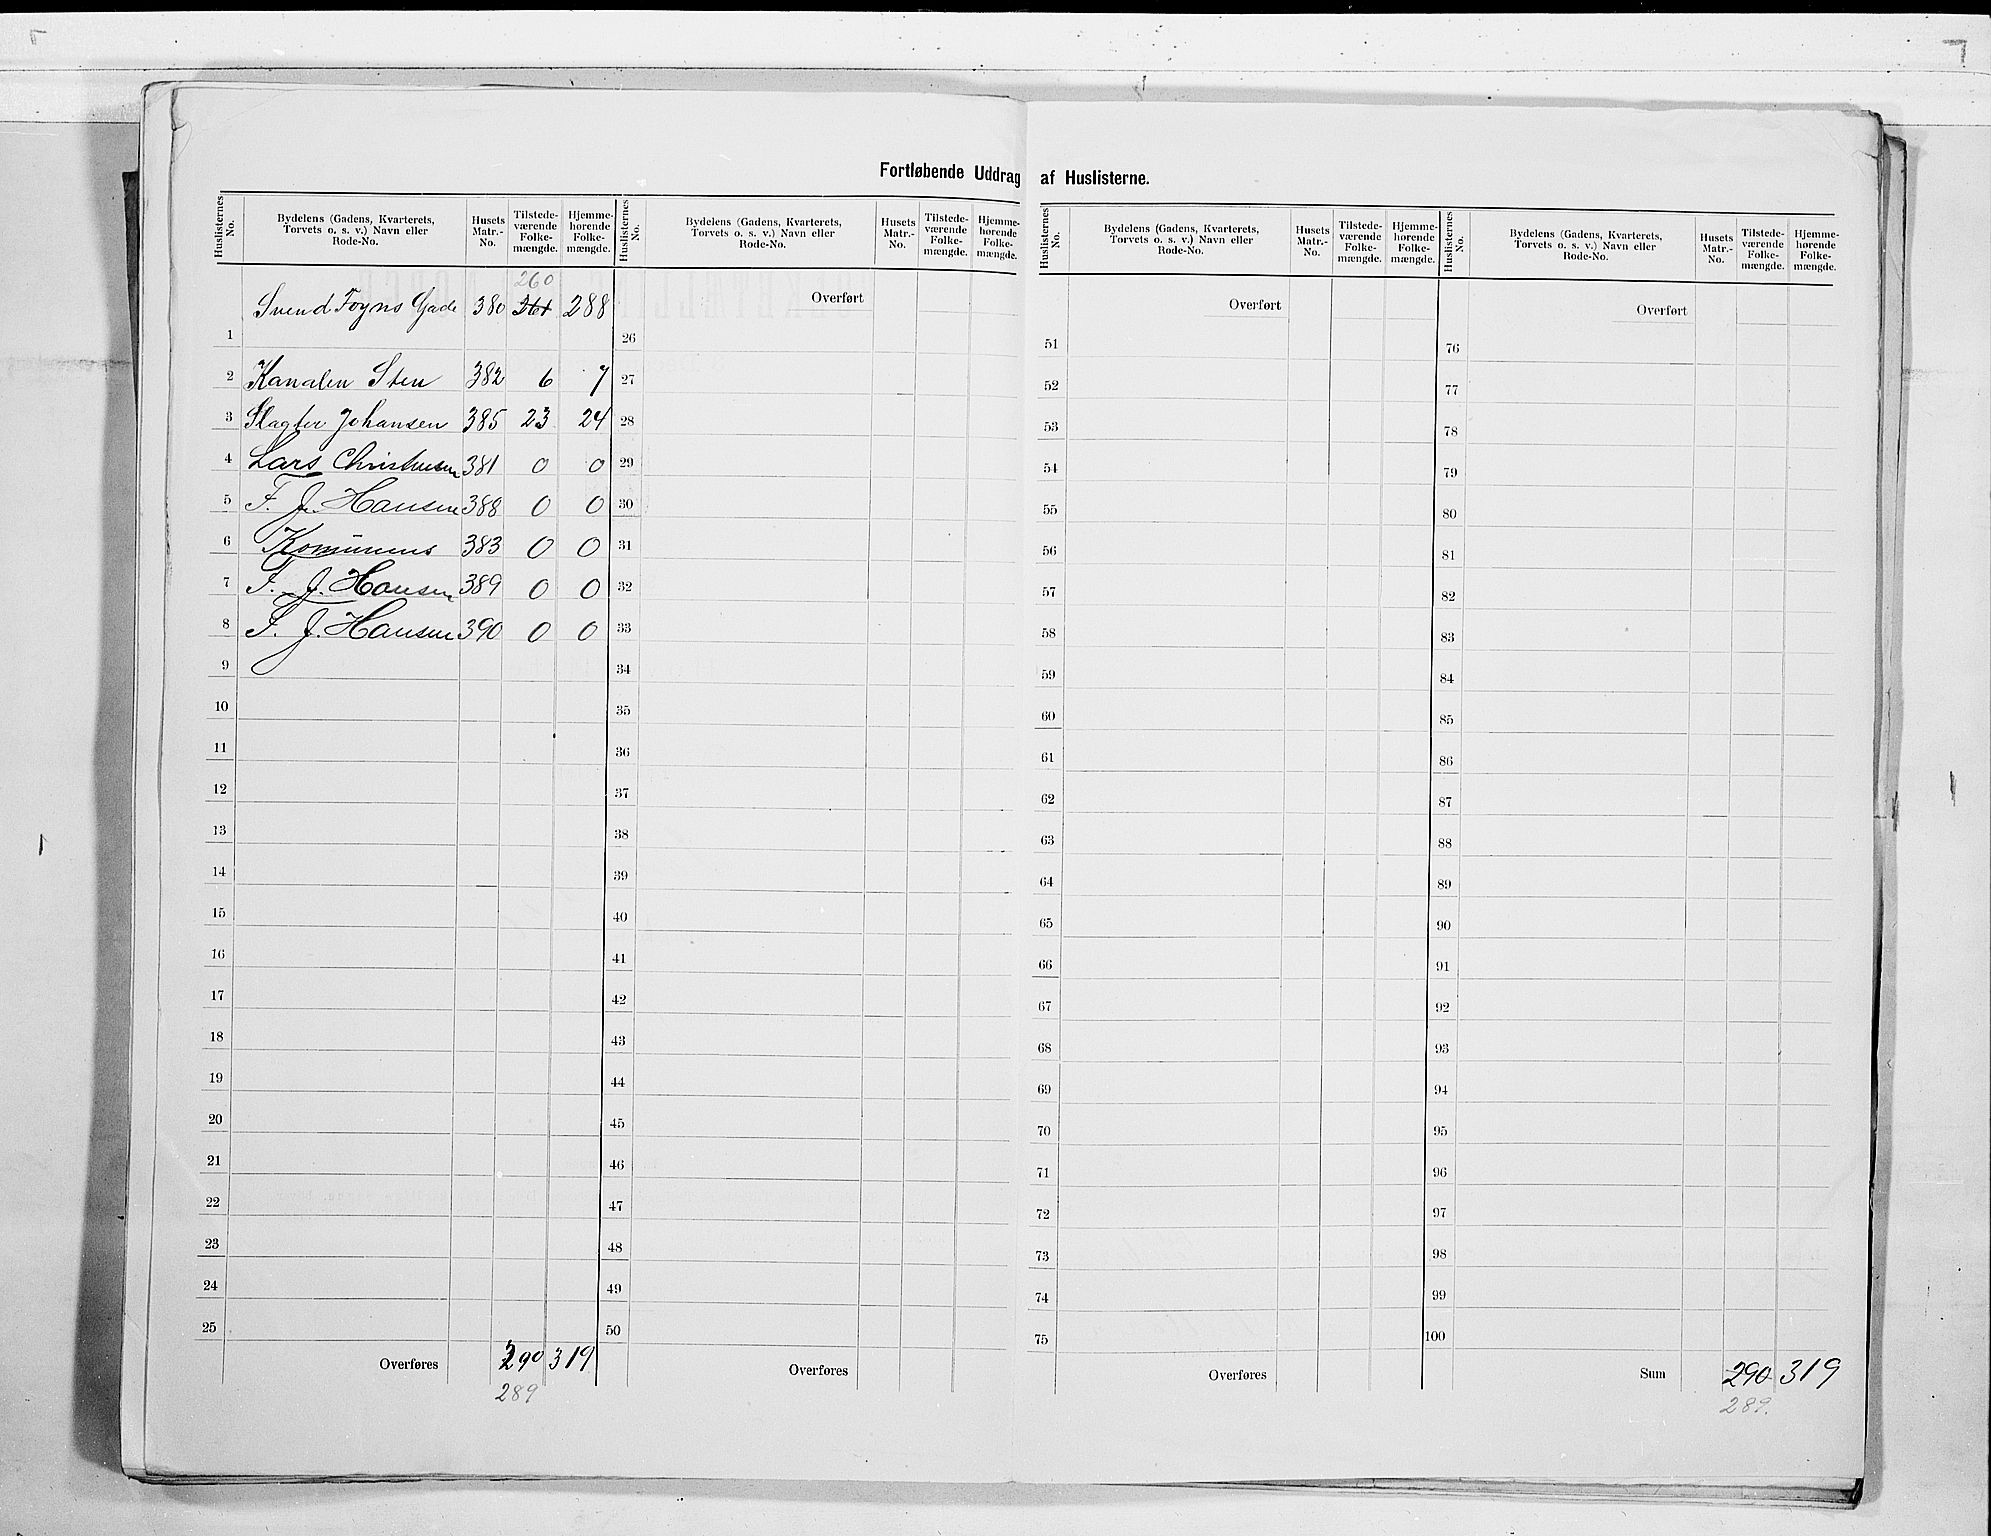 Fortløbende Uddrag af Huslisterne.
Huslisternes No. | Bydelens (Gadens, Kvarterets, Torvets o. s. v.) Navn eller Rode-No. | Husets Matr.-No. | Tilstede-værende Folke-mængde. | Hjemme-hørende Folke-mængde.
Huslisternes No. | Bydelens (Gadens, Kvarterets, Torvets o. s. v.) Navn eller Rode-No. | Husets Matr.-No. | Tilstede-værende Folke-mængde. | Hjemme-hørende Folke-mængde.
Huslisternes No. | Bydelens (Gadens, Kvarterets, Torvets o. s. v.) Navn eller Rode-No. | Husets Matr.-No. | Tilstede-værende Folke-mængde. | Hjemme-hørende Folke-mængde.
Huslisternes No. | Bydelens (Gadens, Kvarterets, Torvets o. s. v.) Navn eller Rode-No. | Husets Matr.-No. | Tilstede-værende Folke-mængde. | Hjemme-hørende Folke-mængde.
260
1 Svend Foyns Gade 380 261 288
2 Kanalen Sten 382 6 7
3 Slagter Johansen 385 23 24
4 Lars Christensen 381 0 0
5 F. J. Hansen 388 0 0
6 Komunens 383 0 0
7 F. J. Hansen 389 0 0
8 F. J. Hansen 390 0 0
9
10
11
12
13
14
15
16
17
18
19
20
21
22
23
24
25
Overføres 290 319
289
Overført
26
27
28
29
30
31
32
33
34
35
36
37
38
39
40
41
42
43
44
45
46
47
48
49
50
Overføres
Overført
51
52
53
54
55
56
57
58
59
60
61
62
63
64
65
66
67
68
69
70
71
72
73
74
75
Overføres
Overført
76
77
78
79
80
81
82
83
84
85
86
87
88
89
90
91
92
93
94
95
96
97
98
99
100
Sum 290 319
289.